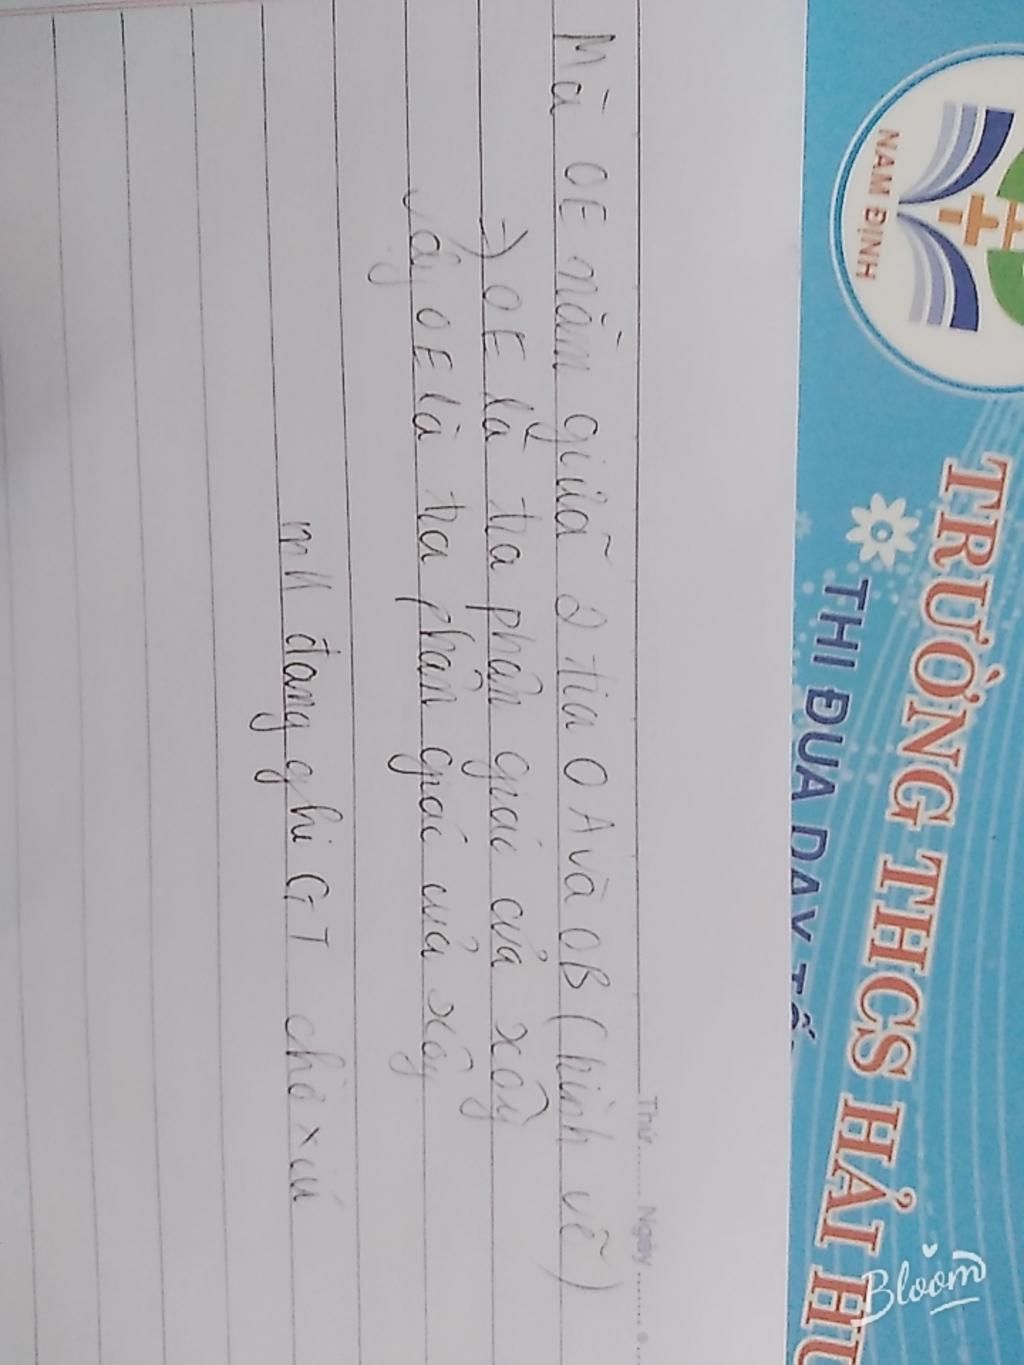 NAM ĐỊNH
TRƯỜNG THCS HẢI
THI ĐUA DẠY
Thứ........ Ngày ........
Mà OE nằm giữa 2 tia OA và OB (hình vẽ)
=) OE là tia phân giác của xOy
Vậy OE là tia phân giác của xOy
mk đang ghi GT chờ xíu
Bloom